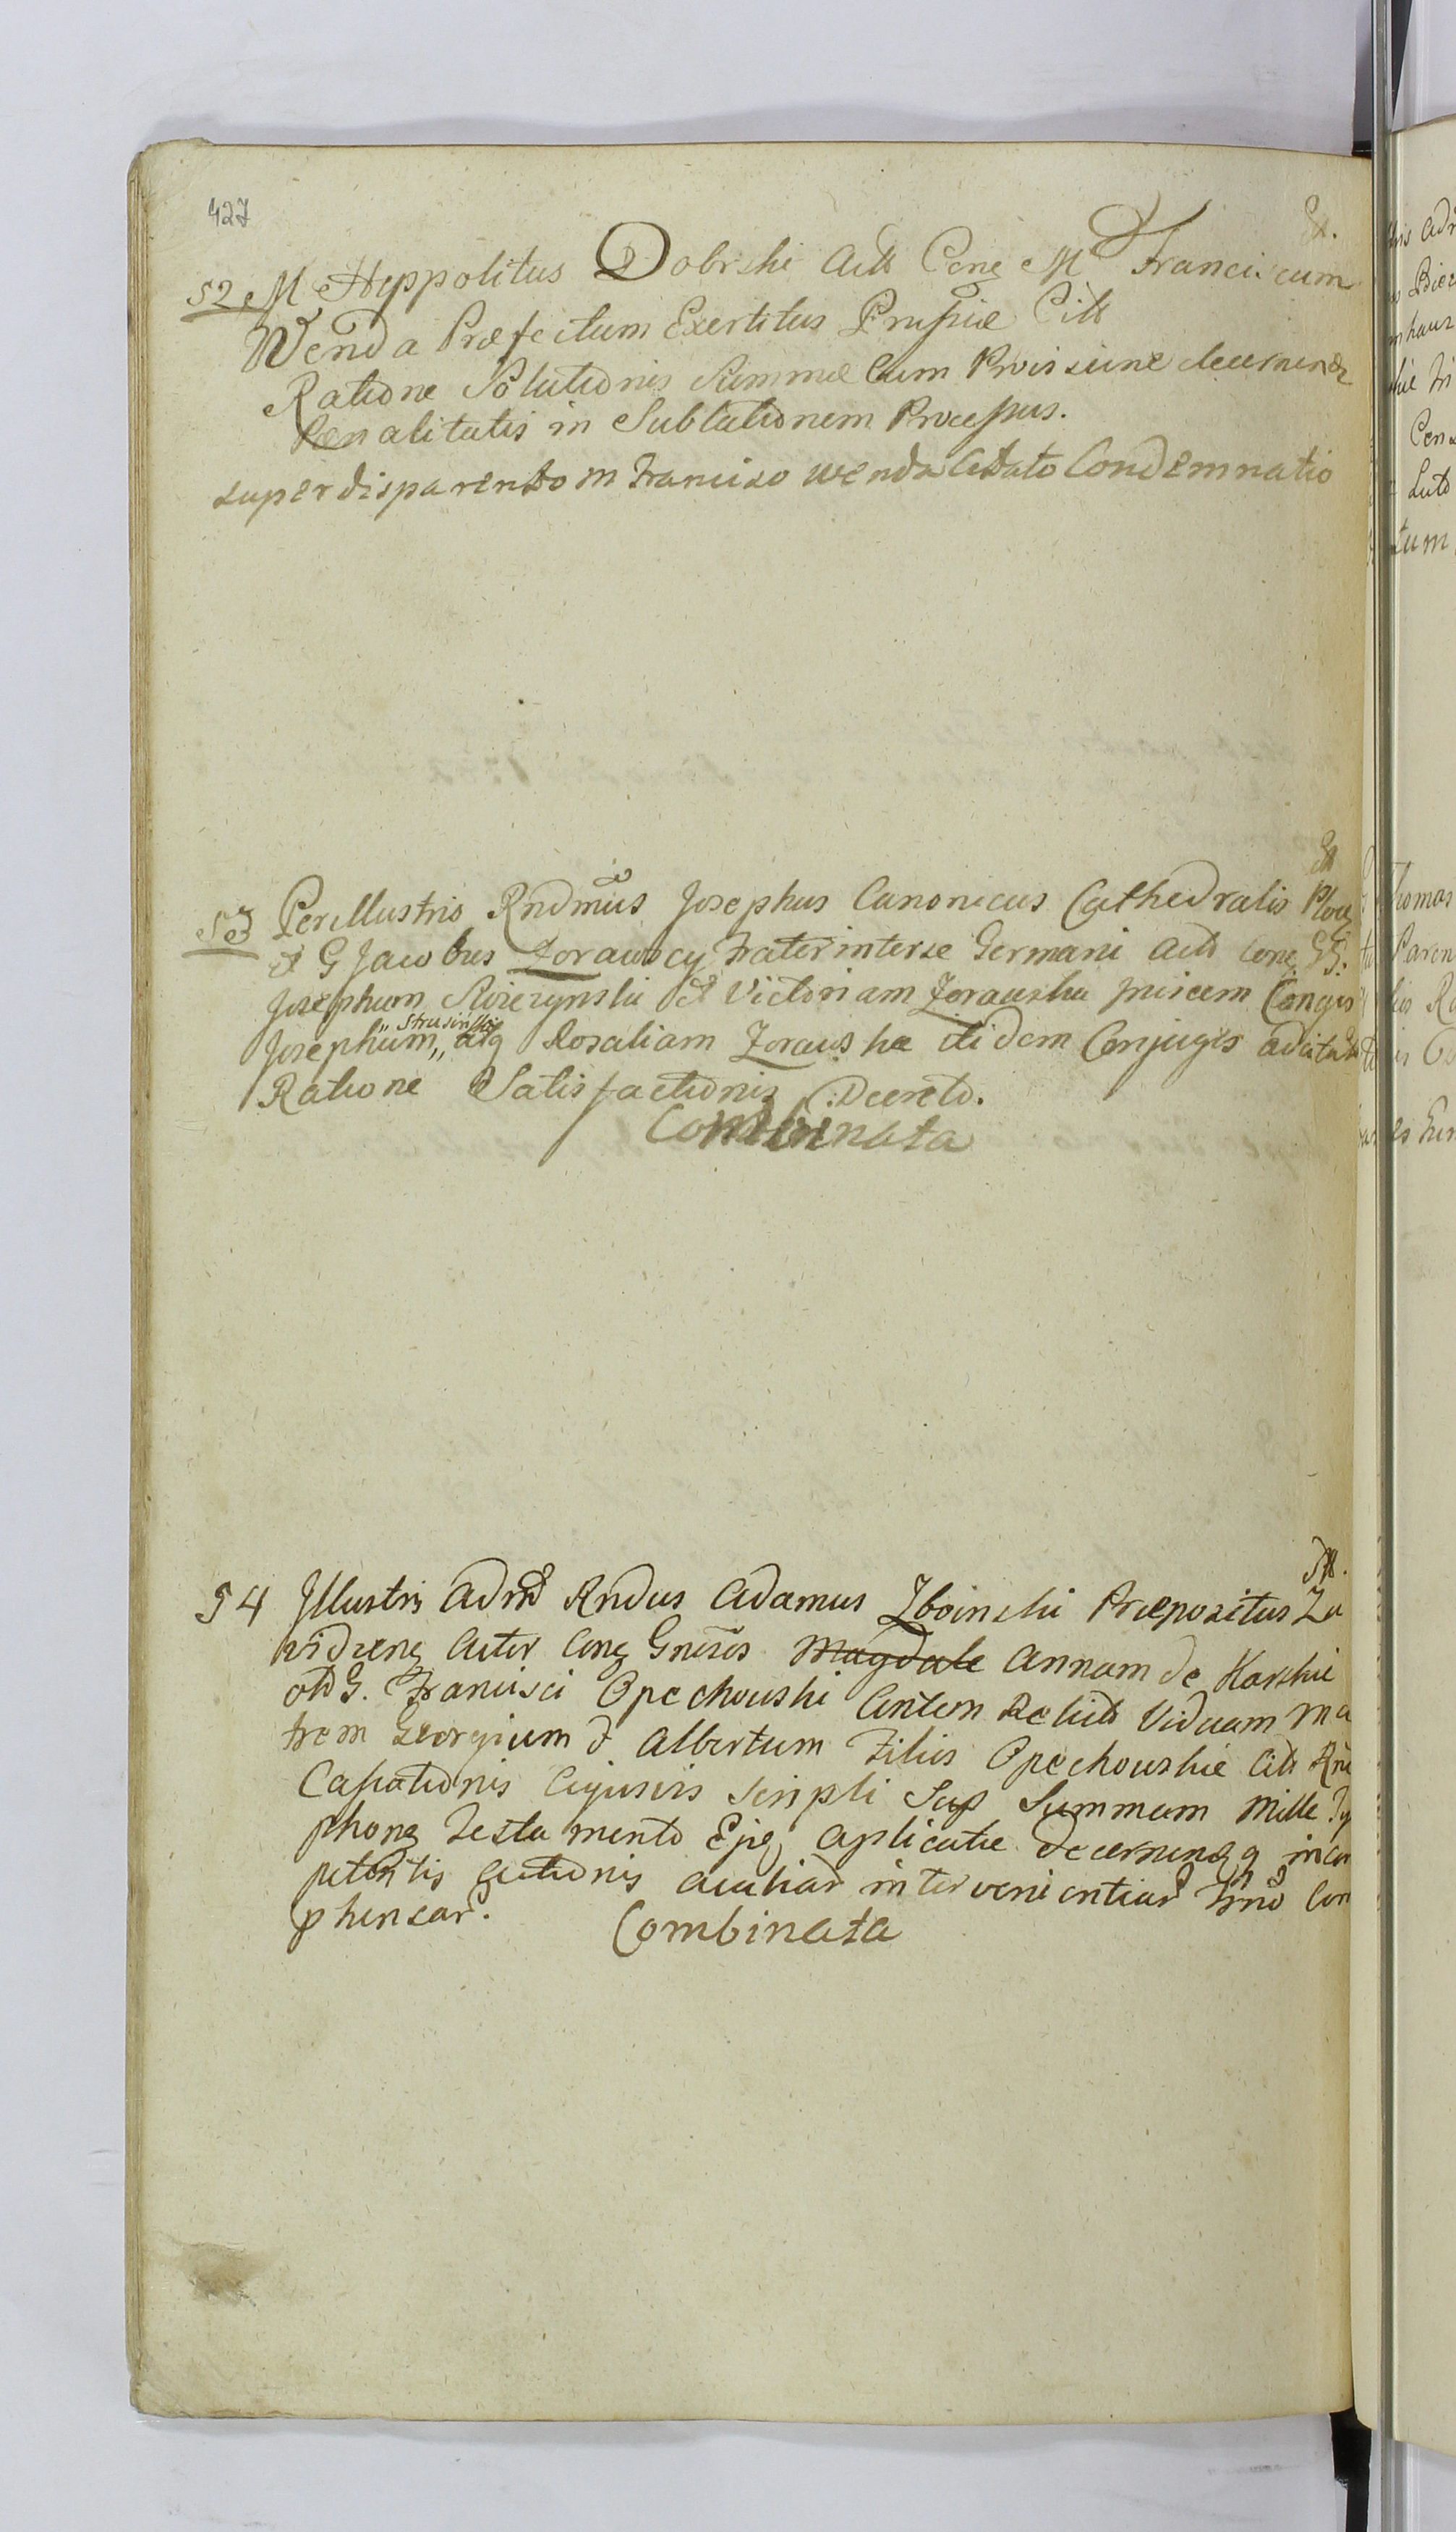 427
52 M Heppolitus Dobrski Actt Cone M Franciscum
Wenda Præfectum Exertitus Prussiæ Citt
Ratione Solutionis Summæ Cum Provisione decernen
Penalitatis in Sublationem Processus.
super disparendo M Francisco Wenda Citato Condemnatio
53 Perillustris Rndmus Josephus Canonicus Cathedralis Ploc
et G Jacobus Zorawscy Frater interse Germani Actt Cone GG.
Josephum et Victoriam Zorawska Conjus
Josephum,, Strusinski atq Rosaliam Zorawska itidem Conjuges
Ratione Satisfactionis Decreto.
Combinata
54 Illustris Adm Rndus Adamus Zboinski Præpositus Za
widzens Actor Cone Gnosos Magdale Annam de Karskie
olim G. Francisci Opechowski Relict Viduam Ma
trem Georgium et Albertum Filios Opechowskie Citt
Cassationis Cujusvis Scripti Sup Summam Mille Ty
phong Testamento Ejq aplicatæ decernenq incom
petentis actionis intervenientiar Con
phensar.
Combinata